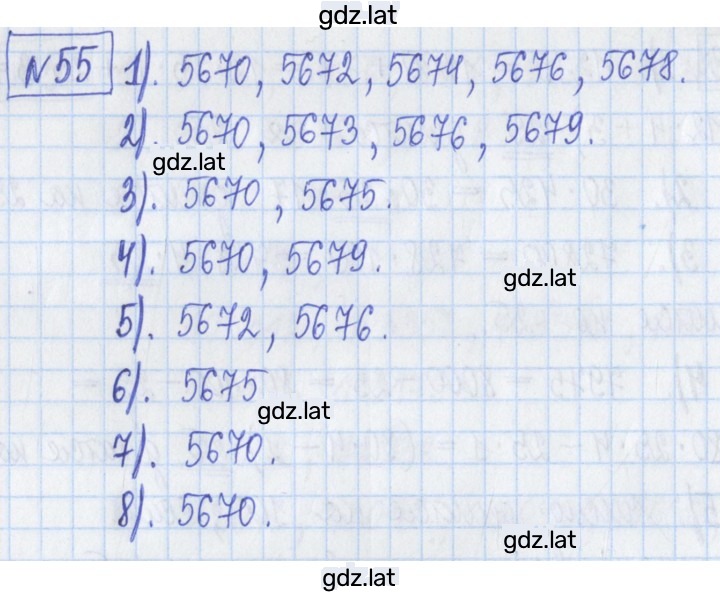 gdz.lat
№55 1). 5670, 5672, 5674, 5676, 5678.
2). 5670, 5673, 5676, 5679.
gdz.lat
3). 5670, 5675.
4). 5670, 5679.
gdz.lat
5). 5672, 5676.
6). 5675
gdz.lat
7). 5670.
8). 5670.
gdz.lat
gdz.lat